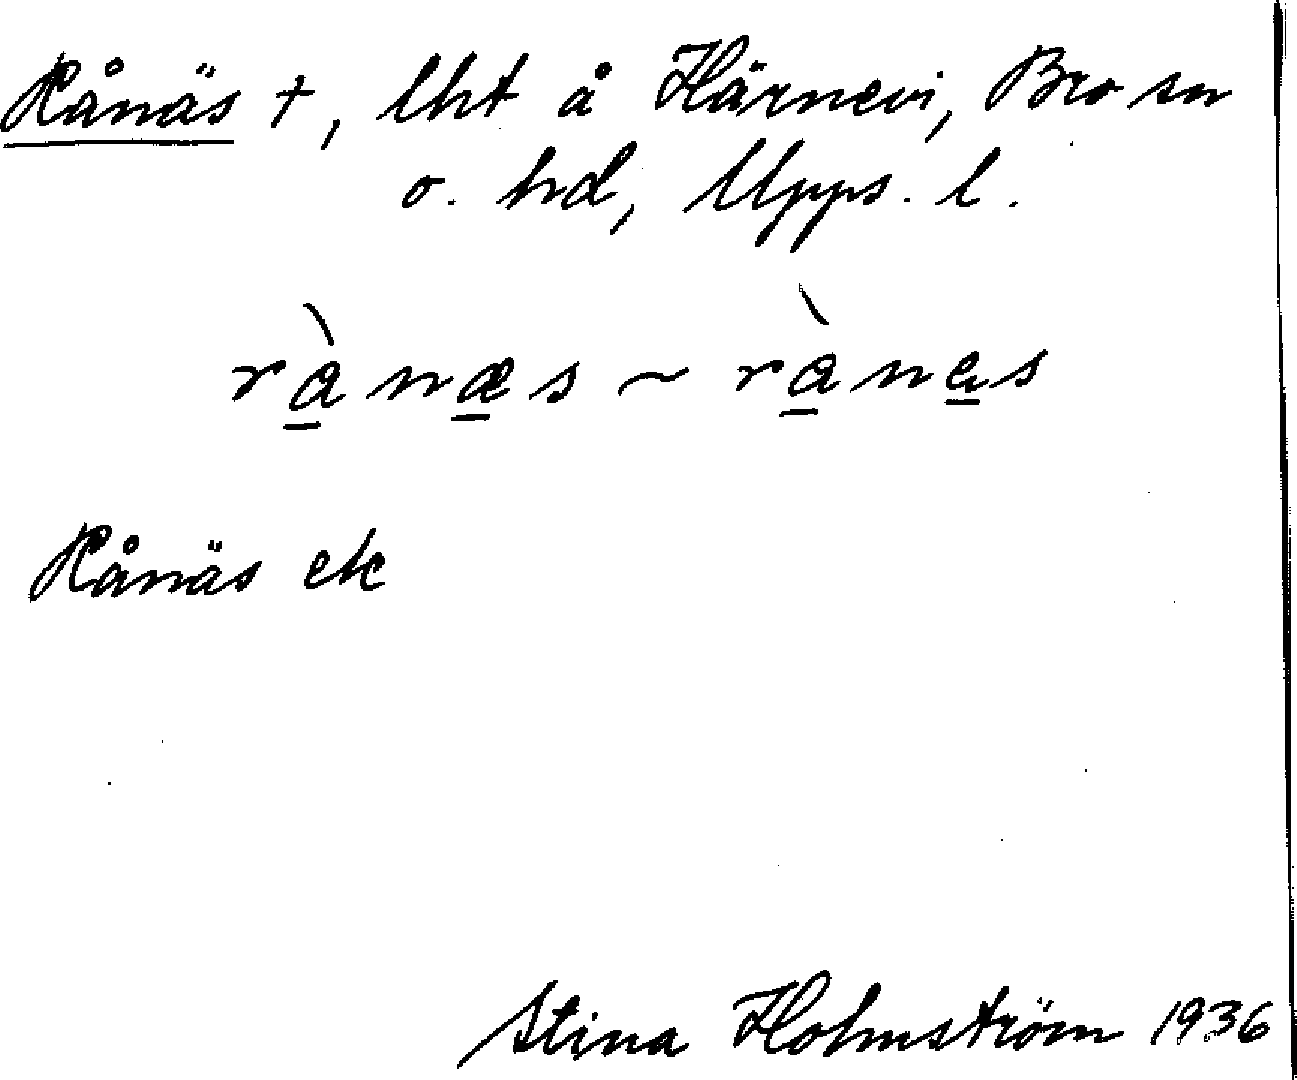 Rånäs †, lht å Härnevi, Bro sn
o. hd, Upps. l.
rànæs ~ rànes
Rånäs ek
Stina Holmström 1936